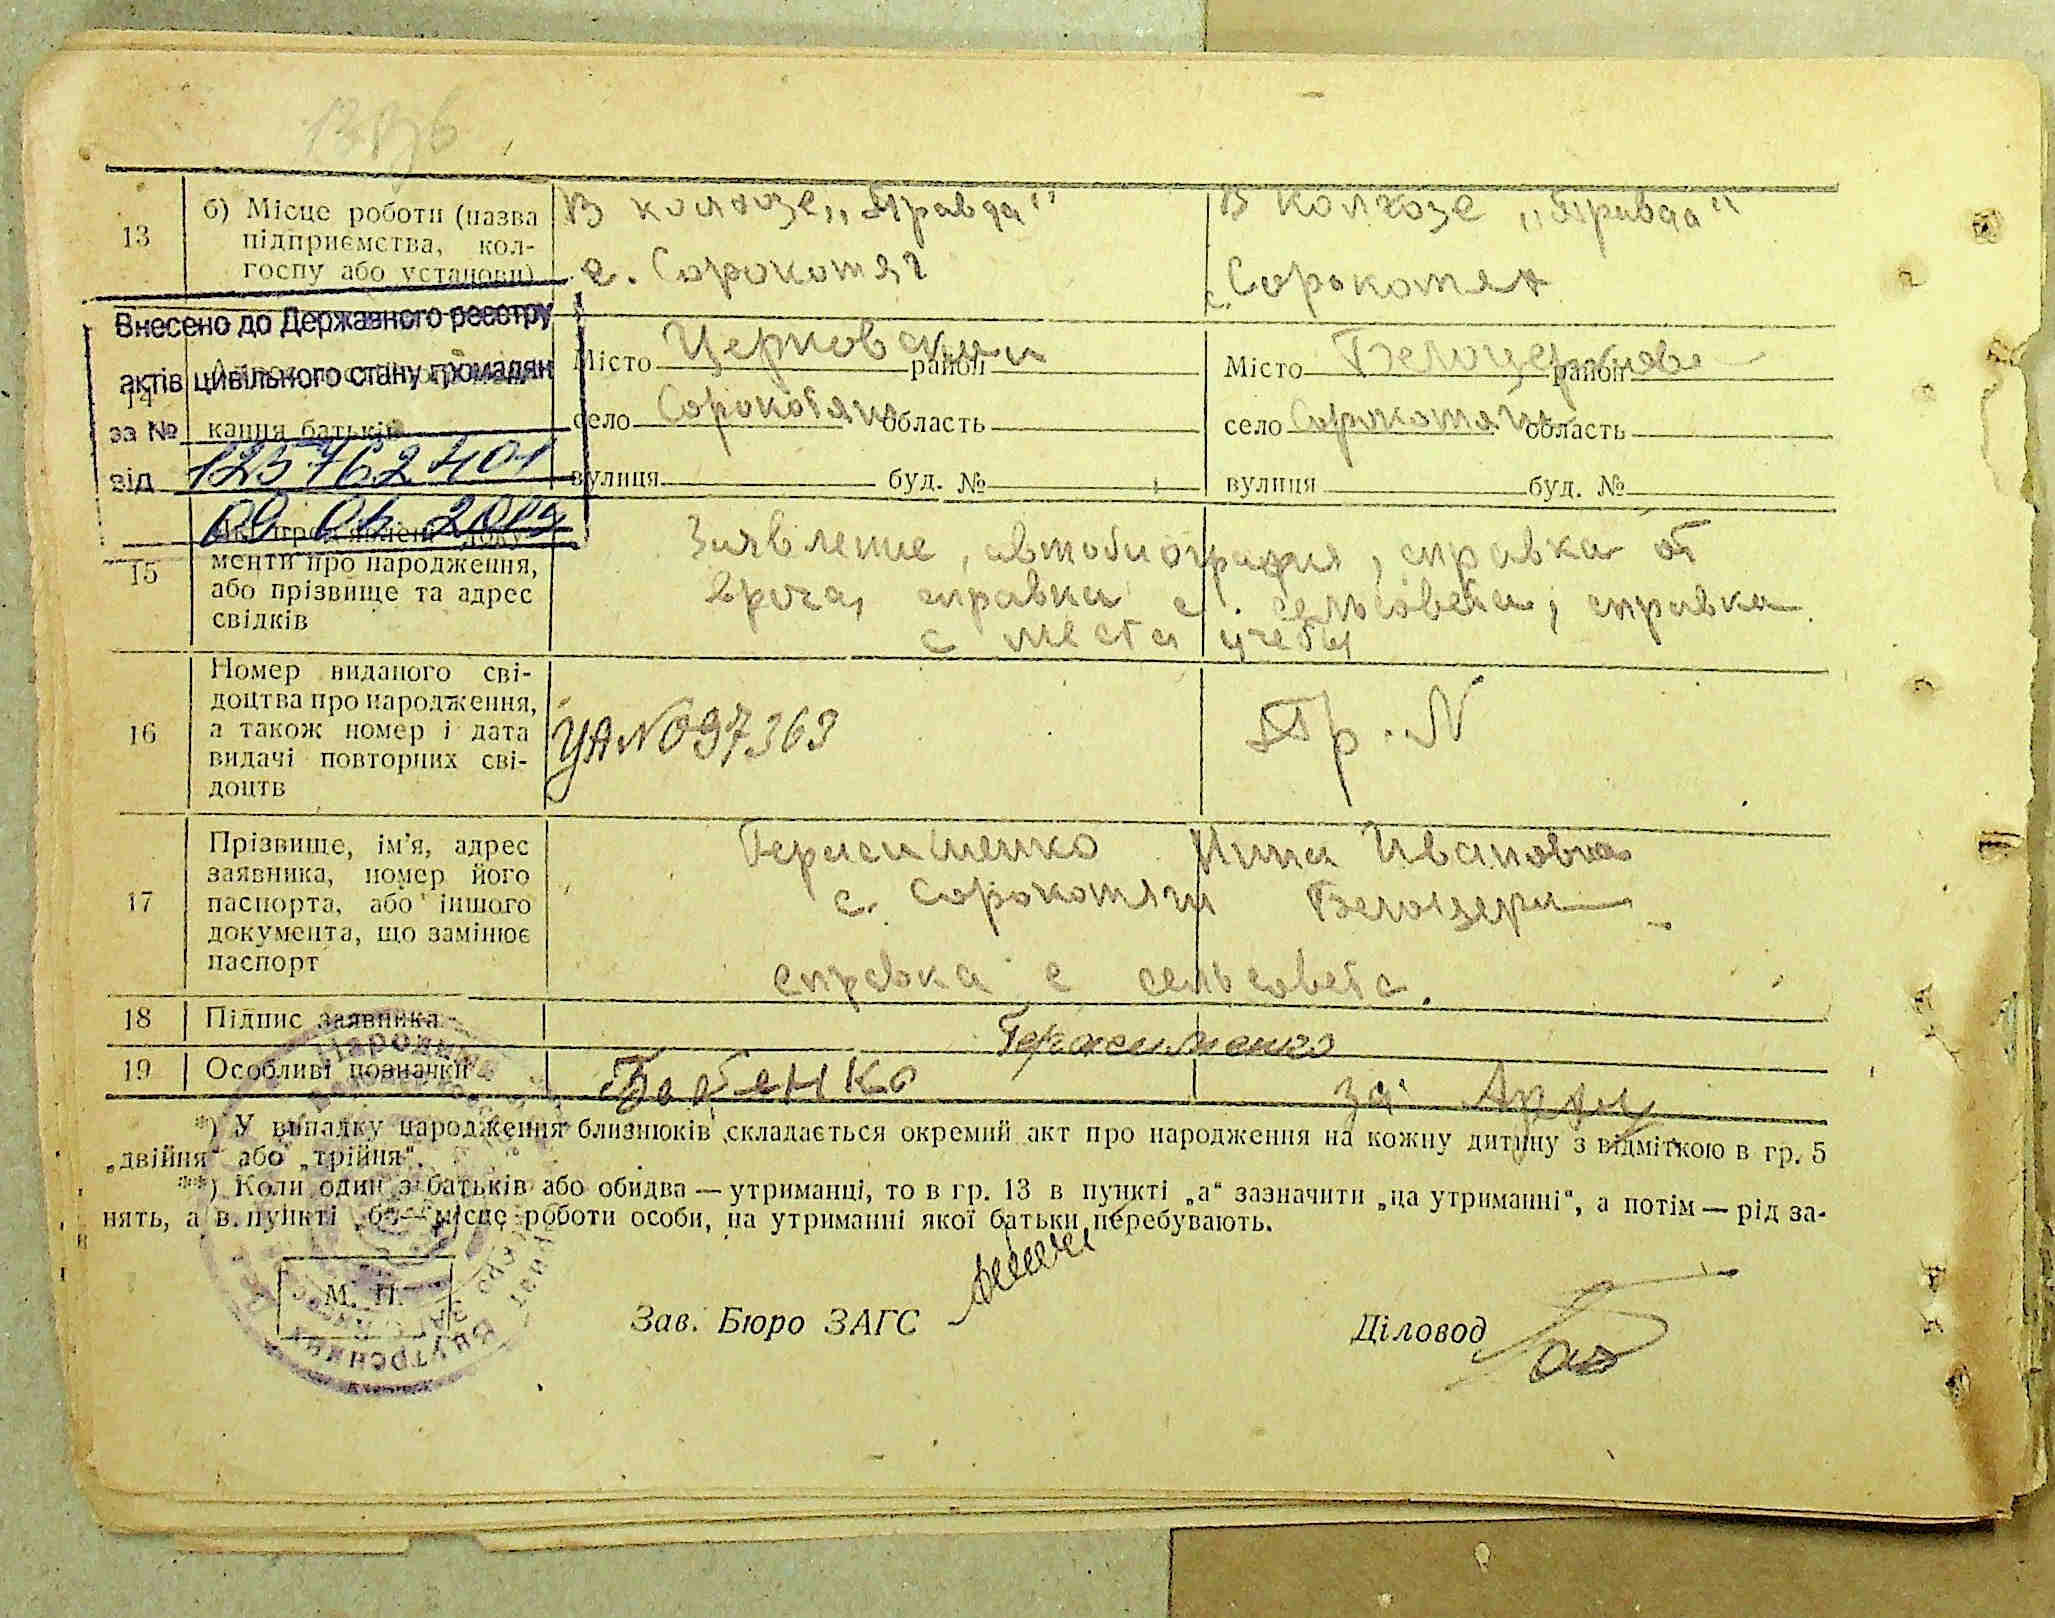 13
б) Місце роботи (назва підприємства, колгоспу або установи)
В колхозе „Правда"
с. Сорокотяг
В колхозе „Правда"
с. Сорокотяг
Внесено до Державного реєстру
актів цивільного стану громадян
за № 125762401
від 09 06. 2009
кання батьків
Місто Церковский район
село Сорокотяги область
вулиця буд. №
Місто район
село Сорокотяги область
вулиця буд. №
15
менти про народження,
або прізвище та адрес
свідків
Заявление, автобиография, справка от
врача, справка с сельсовета, справка
с места учебы
16
Номер виданого сві-
доцтва про народження,
а також номер і дата
видачі повторних сві-
доцтв
УА N 097363
17
Прізвище, ім'я, адрес
заявника, номер його
паспорта, або іншого
документа, що замінює
паспорт
Герасименко Нина Ивановна
с. Сорокотяги Белоцерк
справка с сельсовета.
18
Підпис заявника
Герасименко
19
Особливі позначки
Бабенко
за
*) У випадку народження близнюків складається окремий акт про народження на кожну дитину з відміткою в гр. 5
„двійня" або „трійня".
**) Коли один з батьків або обидва — утриманці, то в гр. 13 в пункті „а" зазначити „на утриманні", а потім — рід за-
нять, а в пункті „б" — місце роботи особи, на утриманні якої батьки перебувають.
М. П.
Зав. Бюро ЗАГС
Діловод